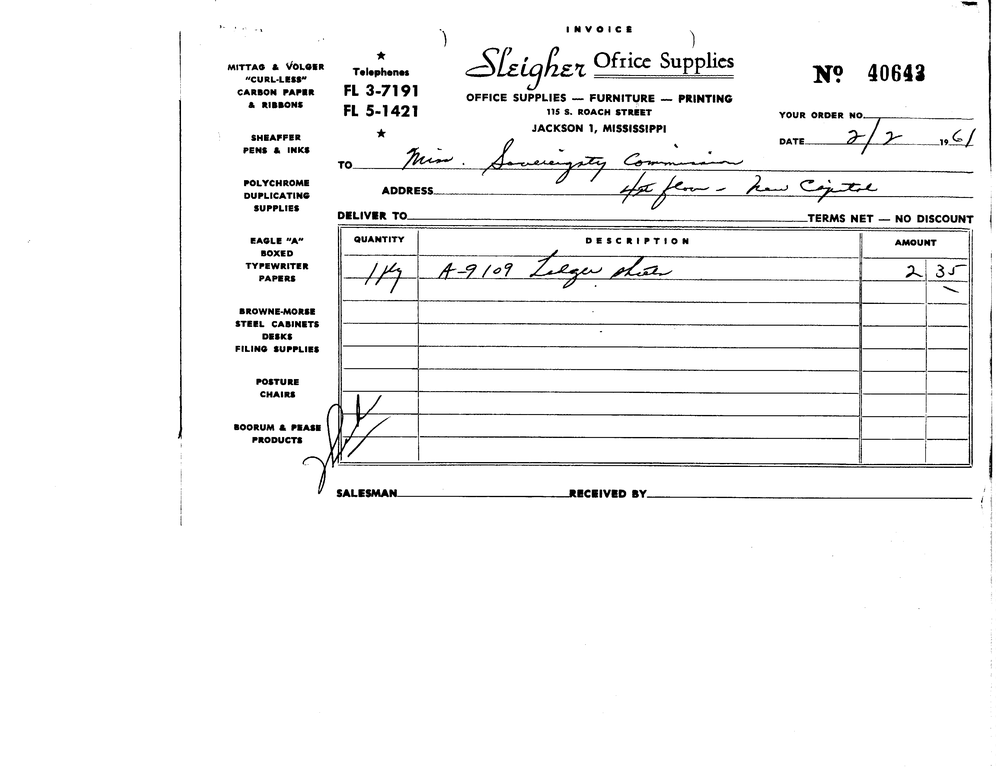 INVOICE
Sleigher Office Supplies
OFFICE SUPPLIES — FURNITURE — PRINTING
115 S. ROACH STREET
JACKSON 1, MISSISSIPPI
★
Telephones
FL 3-7191
FL 5-1421
★
No. 40643
YOUR ORDER NO.
DATE 2/2 1961
TO Miss. Sovereignty Commission
ADDRESS 4th floor - New Capitol
DELIVER TO TERMS NET — NO DISCOUNT
QUANTITY DESCRIPTION AMOUNT
1 pkg A-9109 Ledger sheets 2 35
SALESMAN RECEIVED BY
MITTAG & VOLGER
"CURL-LESS"
CARBON PAPER
& RIBBONS
SHEAFFER
PENS & INKS
POLYCHROME
DUPLICATING
SUPPLIES
EAGLE "A"
BOXED
TYPEWRITER
PAPERS
BROWNE-MORSE
STEEL CABINETS
DESKS
FILING SUPPLIES
POSTURE
CHAIRS
BOORUM & PEASE
PRODUCTS